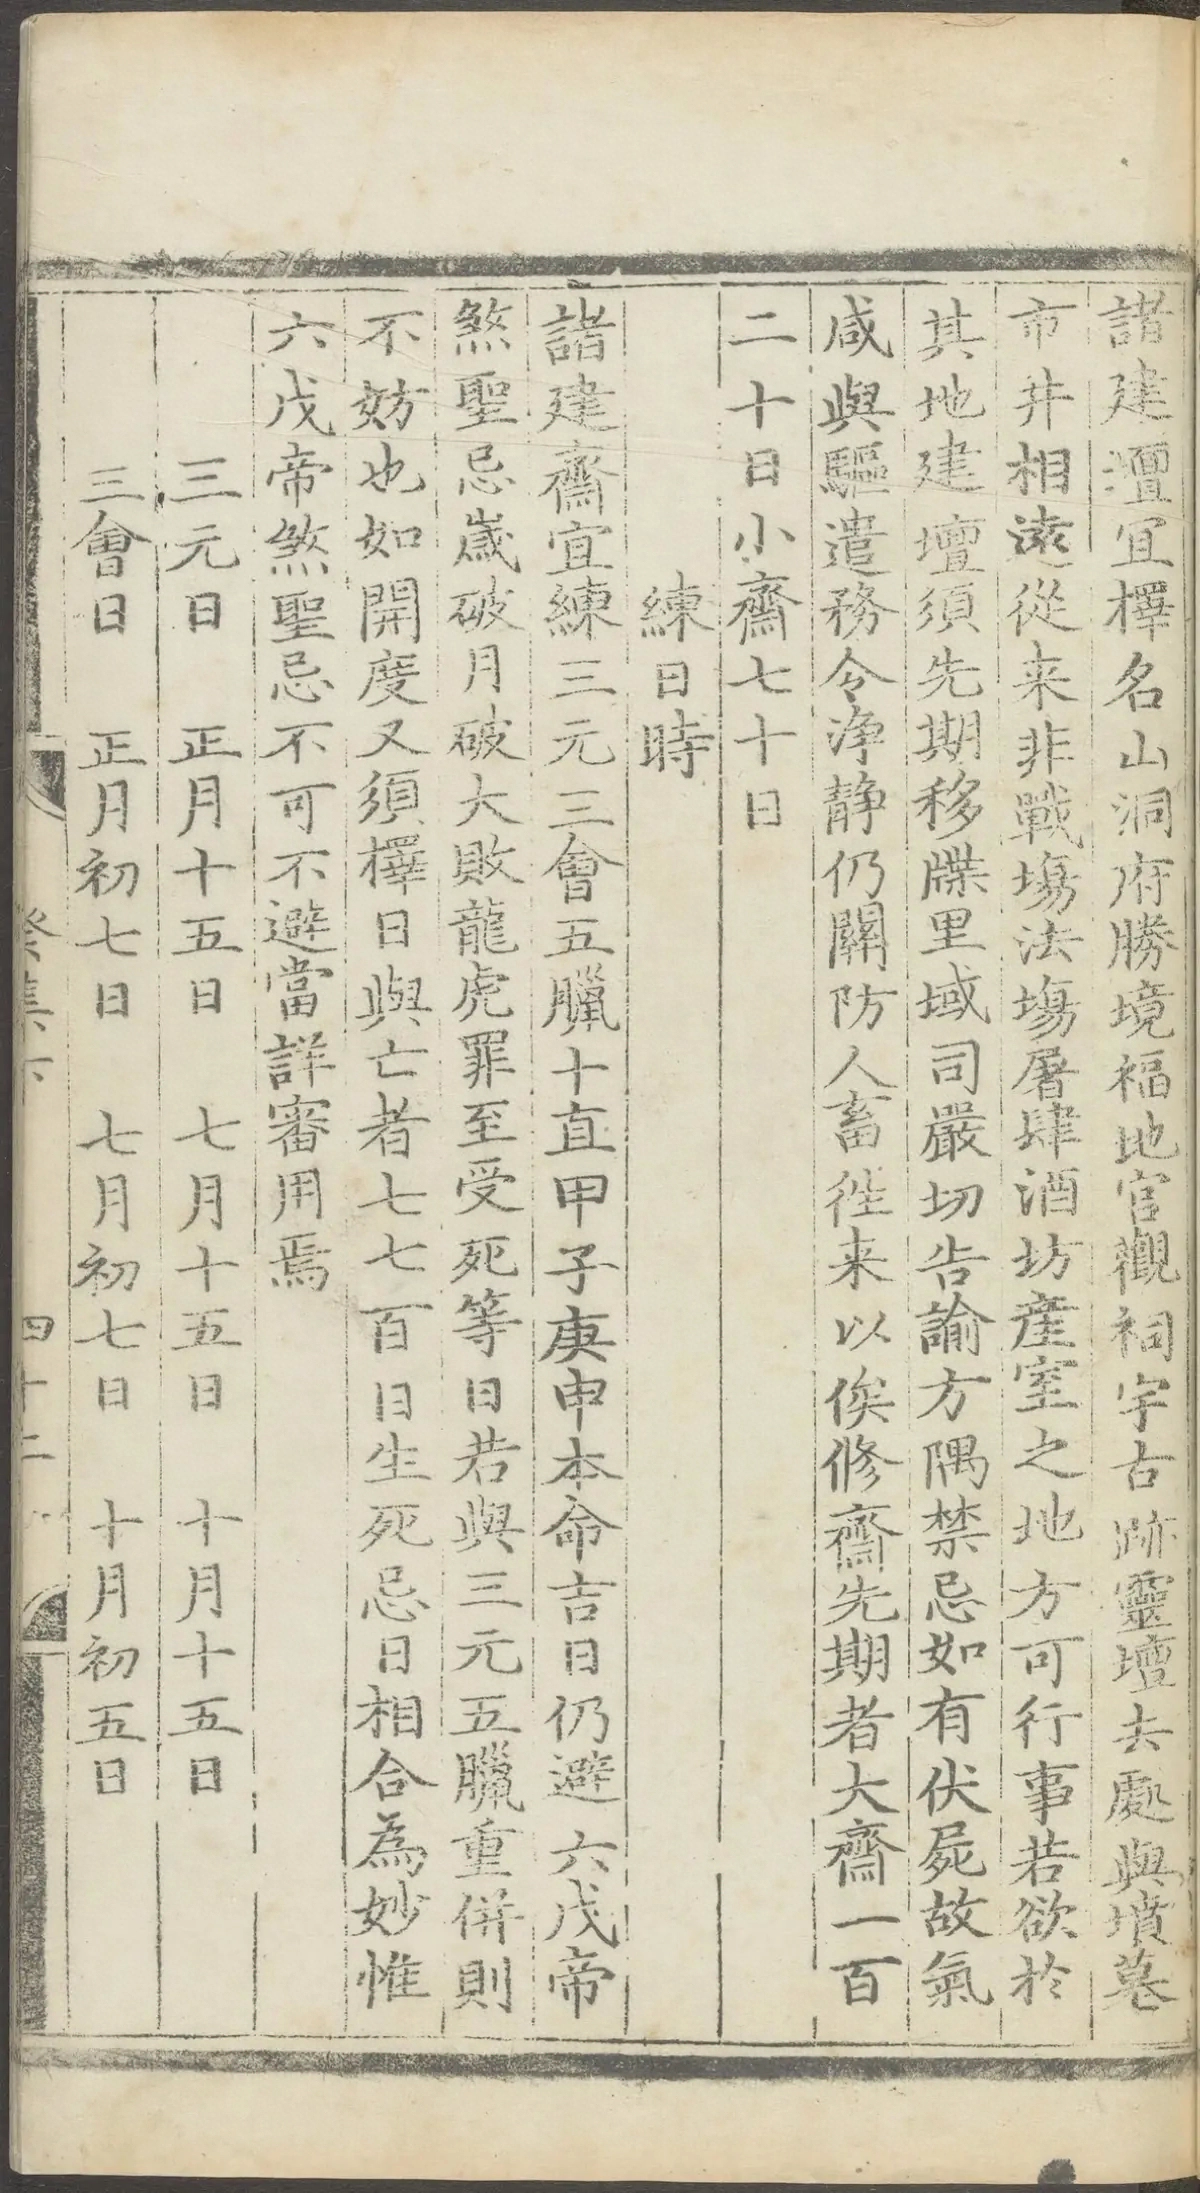 諸建壇宜擇名山洞府勝境福地宫觀祠宇古跡靈壇去處與墳墓
市井相遠從来非戰塲法塲屠肆酒坊産室之地方可行事若欲於
其地建壇須先期移牒里域司嚴切告諭方隅禁忌如有伏屍故氣
咸與驅遣務令浄静仍關防人畜徃来以俟修齋先期者大齋一百
二十日小齋七十日
練日時
諸建齋宜練三元三會五臘十直甲子庚申本命吉日仍避六戊帝
煞聖忌嵗破月破大敗龍虎罪至受死等日若與三元五臘重併則
不妨也如開度又須擇日與亡者七七百日生死忌日相合為妙惟
六戊帝煞聖忌不可不避當詳審用焉
三元日　正月十五日　七月十五日　十月十五日
三會日　正月初七日　七月初七日　十月初五日
癸集下　四十二